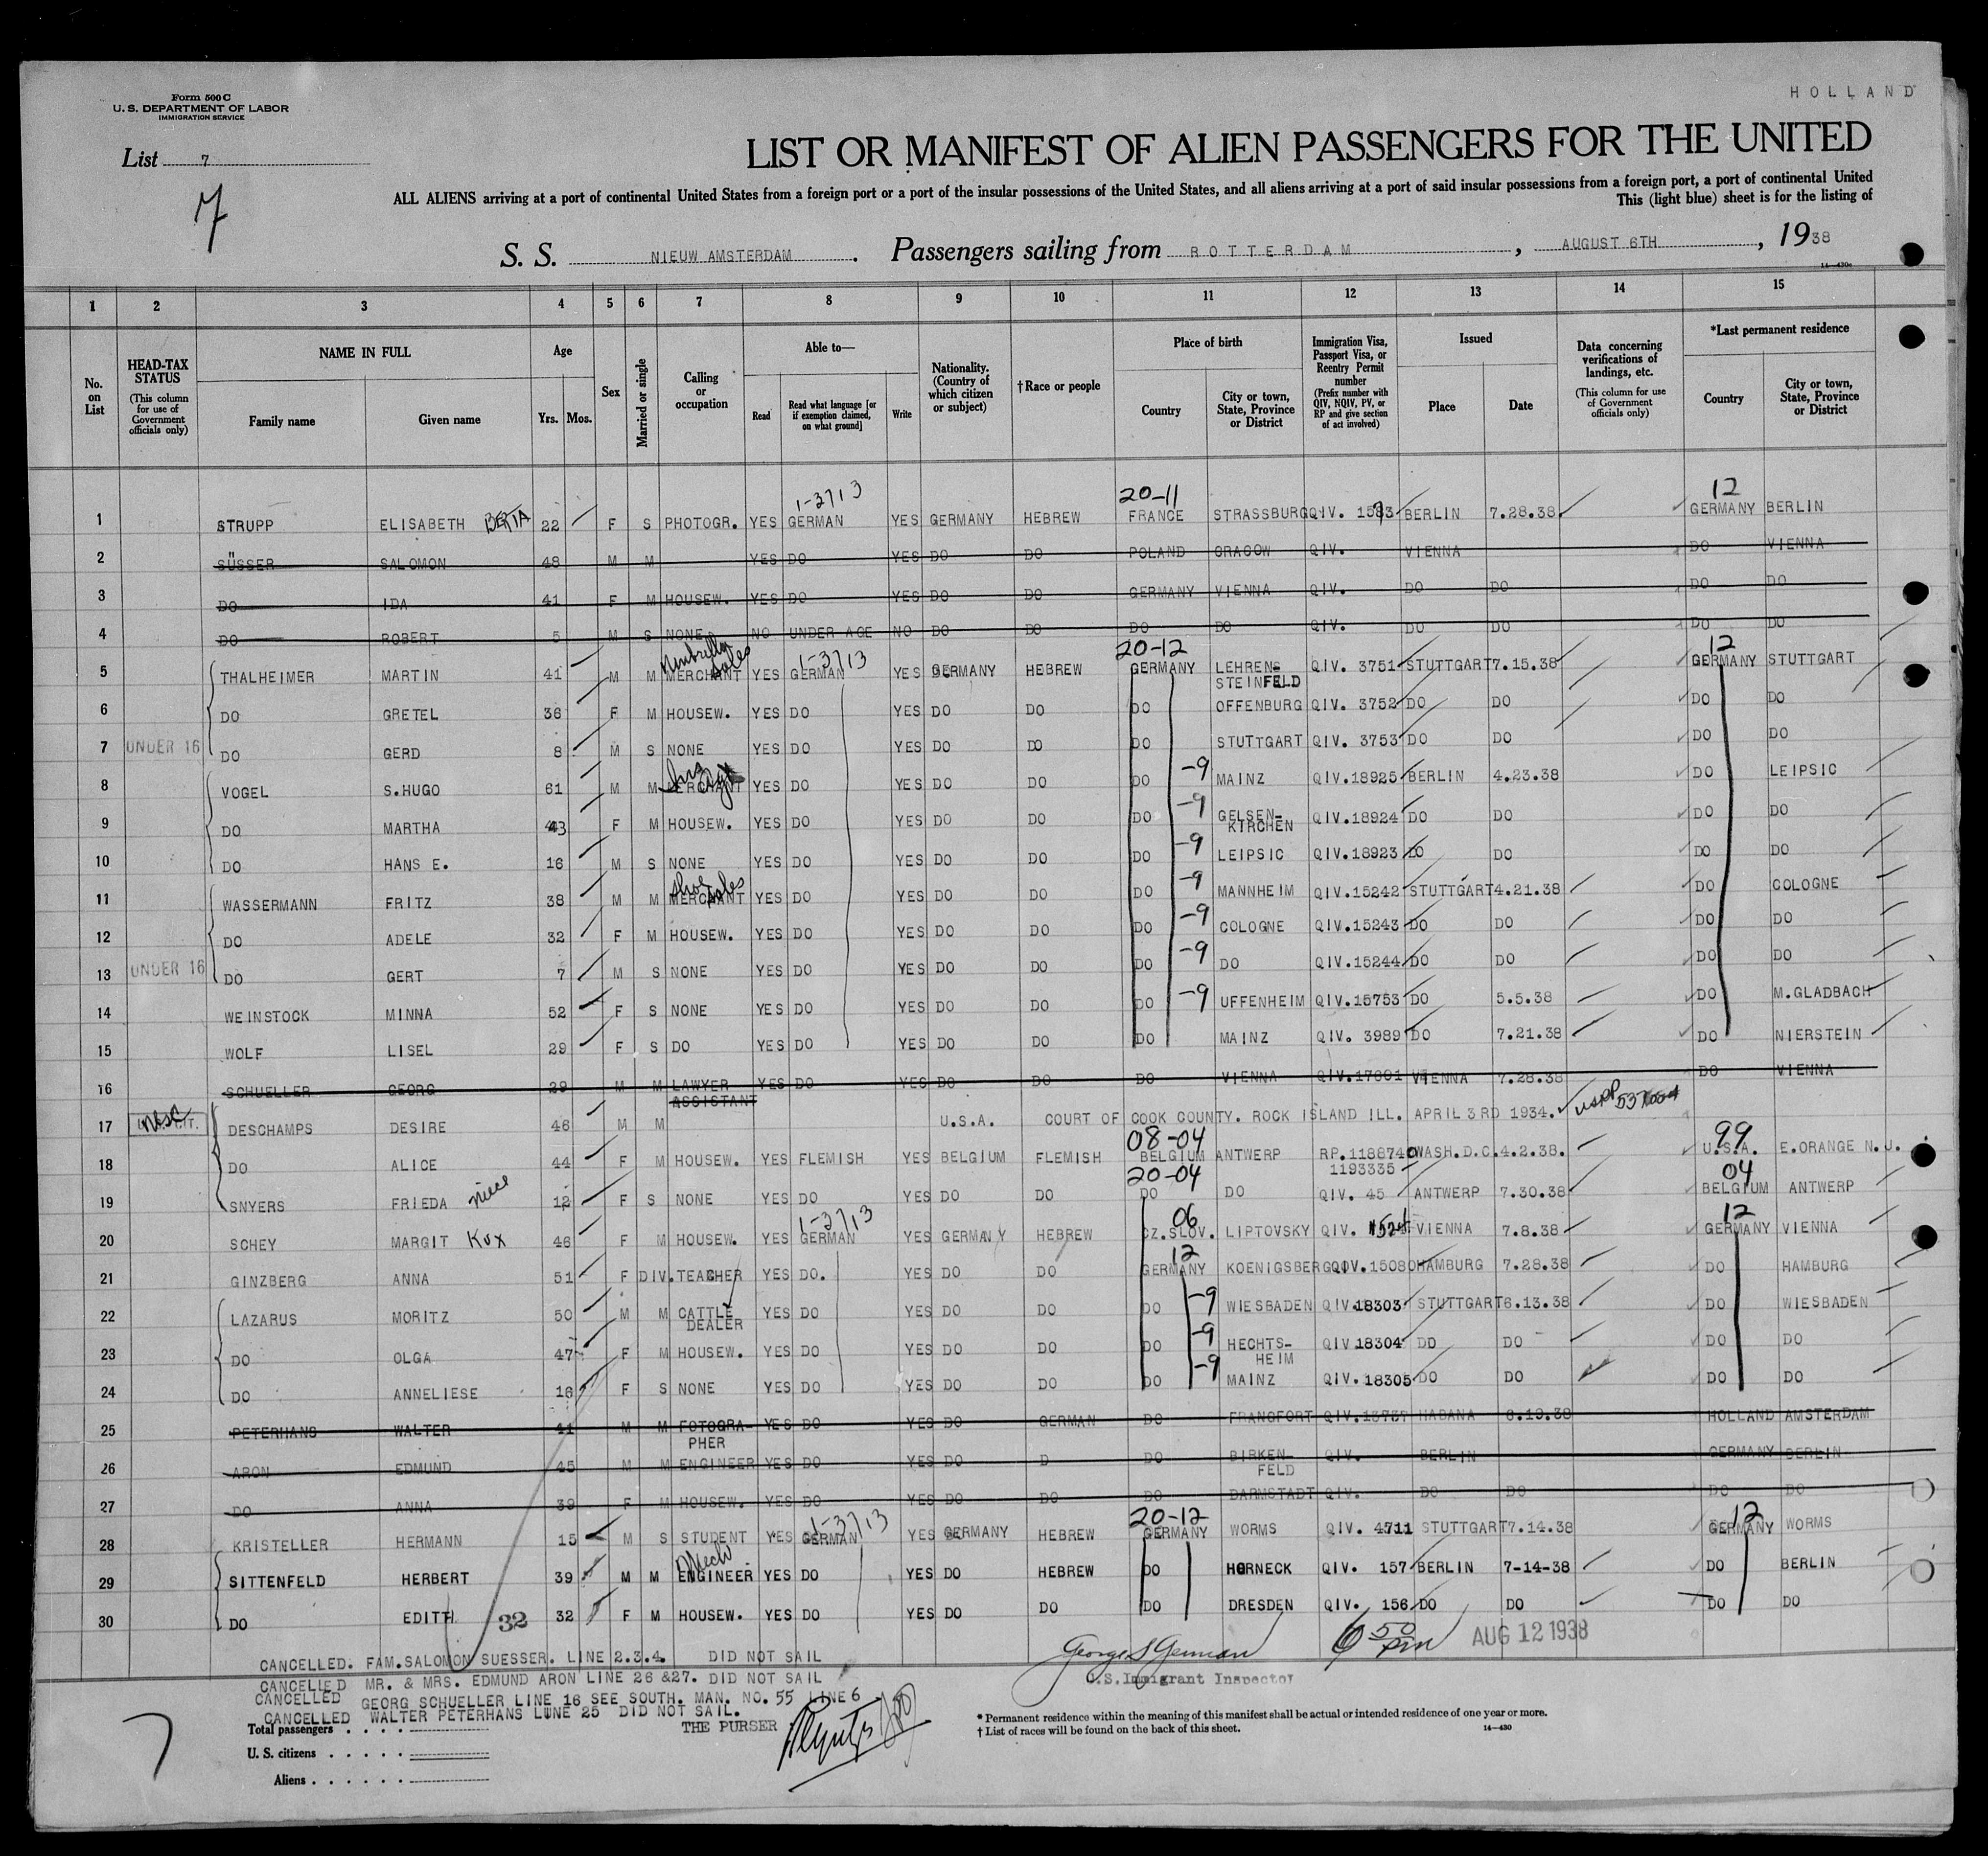 HOLLAND
Form 500 C
U. S. DEPARTMENT OF LABOR
IMMIGRATION SERVICE
List 7
7
LIST OR MANIFEST OF ALIEN PASSENGERS FOR THE UNITED
ALL ALIENS arriving at a port of continental United States from a foreign port or a port of the insular possessions of the United States, and all aliens arriving at a port of said insular possessions from a foreign port, a port of continental United
This (light blue) sheet is for the listing of
S. S. NIEUW AMSTERDAM . Passengers sailing from ROTTERDAM , AUGUST 6TH , 1938
14—430c
1 2 3 4 5 6 7 8 9 10 11 12 13 14 15
No. on List
HEAD-TAX STATUS (This column for use of Government officials only)
NAME IN FULL
Family name Given name
Age
Yrs. Mos.
Sex
Married or single
Calling or occupation
Able to—
Read Read what language [or if exemption claimed, on what ground] Write
Nationality. (Country of which citizen or subject)
†Race or people
Place of birth
Country City or town, State, Province or District
Immigration Visa, Passport Visa, or Reentry Permit number (Prefix number with QIV, NQIV, PV, or RP and give section of act involved)
Issued
Place Date
Data concerning verifications of landings, etc. (This column for use of Government officials only)
*Last permanent residence
Country City or town, State, Province or District
1-3713 20-11 12
1 STRUPP ELISABETH BERTA 22 F S PHOTOGR. YES GERMAN YES GERMANY HEBREW FRANCE STRASSBURG QIV. 1583 BERLIN 7.28.38 GERMANY BERLIN
2 SÜSSER SALOMON 48 M M YES DO YES DO DO POLAND CRACOW QIV. VIENNA DO VIENNA
3 DO IDA 41 F M HOUSEW. YES DO YES DO DO GERMANY VIENNA QIV. DO DO DO DO
4 DO ROBERT 5 M S NONE NO UNDER AGE NO DO DO DO DO QIV. DO DO DO DO
sales 1-3713 20-12 12
5 THALHEIMER MARTIN 41 M M MERCHANT YES GERMAN YES GERMANY HEBREW GERMANY LEHRENSTEINFELD QIV. 3751 STUTTGART 7.15.38 GERMANY STUTTGART
6 DO GRETEL 36 F M HOUSEW. YES DO YES DO DO DO OFFENBURG QIV. 3752 DO DO DO DO
7 UNDER 16 DO GERD 8 M S NONE YES DO YES DO DO DO STUTTGART QIV. 3753 DO DO DO DO
8 VOGEL S.HUGO 61 M M MERCHANT YES DO YES DO DO DO -9 MAINZ QIV.18925 BERLIN 4.23.38 DO LEIPSIC
9 DO MARTHA 43 F M HOUSEW. YES DO YES DO DO DO -9 GELSEN-KIRCHEN QIV.18924 DO DO DO DO
10 DO HANS E. 16 M S NONE YES DO YES DO DO DO -9 LEIPSIC QIV.18923 DO DO DO DO
shoe sales
11 WASSERMANN FRITZ 38 M M MERCHANT YES DO YES DO DO DO -9 MANNHEIM QIV.15242 STUTTGART 4.21.38 DO COLOGNE
12 DO ADELE 32 F M HOUSEW. YES DO YES DO DO DO -9 COLOGNE QIV.15243 DO DO DO DO
13 UNDER 16 DO GERT 7 M S NONE YES DO YES DO DO DO -9 DO QIV.15244 DO DO DO DO
14 WEINSTOCK MINNA 52 F S NONE YES DO YES DO DO DO -9 UFFENHEIM QIV.15753 DO 5.5.38 DO M.GLADBACH
15 WOLF LISEL 29 F S DO YES DO YES DO DO DO MAINZ QIV. 3989 DO 7.21.38 DO NIERSTEIN
16 SCHUELLER GEORG 29 M M LAWYER ASSISTANT YES DO YES DO DO DO VIENNA QIV.17601 VIENNA 7.28.38 DO VIENNA
17 DESCHAMPS DESIRE 46 M M U.S.A. COURT OF COOK COUNTY. ROCK ISLAND ILL. APRIL 3RD 1934. USPP
08-04 99
18 DO ALICE 44 F M HOUSEW. YES FLEMISH YES BELGIUM FLEMISH BELGIUM ANTWERP RP.1188740 1193335 WASH.D.C. 4.2.38. U.S.A. E.ORANGE N.J.
20-04 04
19 SNYERS FRIEDA niece 12 F S NONE YES DO YES DO DO DO DO QIV. 45 ANTWERP 7.30.38 BELGIUM ANTWERP
1-3713 06 12
20 SCHEY MARGIT Kux 46 F M HOUSEW. YES GERMAN YES GERMANY HEBREW CZ.SLOV. LIPTOVSKY QIV. 1524 VIENNA 7.8.38 GERMANY VIENNA
12
21 GINZBERG ANNA 51 F DIV. TEACHER YES DO. YES DO DO GERMANY KOENIGSBERG QIV.15080 HAMBURG 7.28.38 DO HAMBURG
22 LAZARUS MORITZ 50 M M CATTLE DEALER YES DO YES DO DO DO -9 WIESBADEN QIV.18303 STUTTGART 6.13.38 DO WIESBADEN
23 DO OLGA 47 F M HOUSEW. YES DO YES DO DO DO -9 HECHTS-HEIM QIV 18304 DO DO DO DO
24 DO ANNELIESE 16 F S NONE YES DO YES DO DO DO -9 MAINZ QIV.18305 DO DO DO DO
25 PETERHANS WALTER 41 M M FOTOGRA-PHER YES DO YES DO GERMAN DO FRANCFORT QIV. HABANA HOLLAND AMSTERDAM
26 ARON EDMUND 45 M M ENGINEER YES DO YES DO D DO BIRKEN-FELD QIV. BERLIN GERMANY BERLIN
27 DO ANNA 39 F M HOUSEW. YES DO YES DO DO DO DARMSTADT QIV. DO DO DO DO
1-3713 20-12 12
28 KRISTELLER HERMANN 15 M S STUDENT YES GERMAN YES GERMANY HEBREW GERMANY WORMS QIV. 4711 STUTTGART 7.14.38 GERMANY WORMS
Mech
29 SITTENFELD HERBERT 39 M M ENGINEER YES DO YES DO HEBREW DO HORNECK QIV. 157 BERLIN 7-14-38 DO BERLIN
30 DO EDITH 32 32 F M HOUSEW. YES DO YES DO DO DO DRESDEN QIV. 156 DO DO DO DO
6 50 pm AUG 12 1938
U.S. Immigrant Inspector
CANCELLED. FAM.SALOMON SUESSER. LINE 2.3.4. DID NOT SAIL
CANCELLED MR. & MRS. EDMUND ARON LINE 26 &27. DID NOT SAIL
CANCELLED GEORG SCHUELLER LINE 16 SEE SOUTH. MAN. NO. 55 LINE 6
CANCELLED WALTER PETERHANS LINE 25 DID NOT SAIL.
THE PURSER
7
Total passengers . . . .
U. S. citizens . . . . .
Aliens . . . . . .
* Permanent residence within the meaning of this manifest shall be actual or intended residence of one year or more.
† List of races will be found on the back of this sheet. 14—430